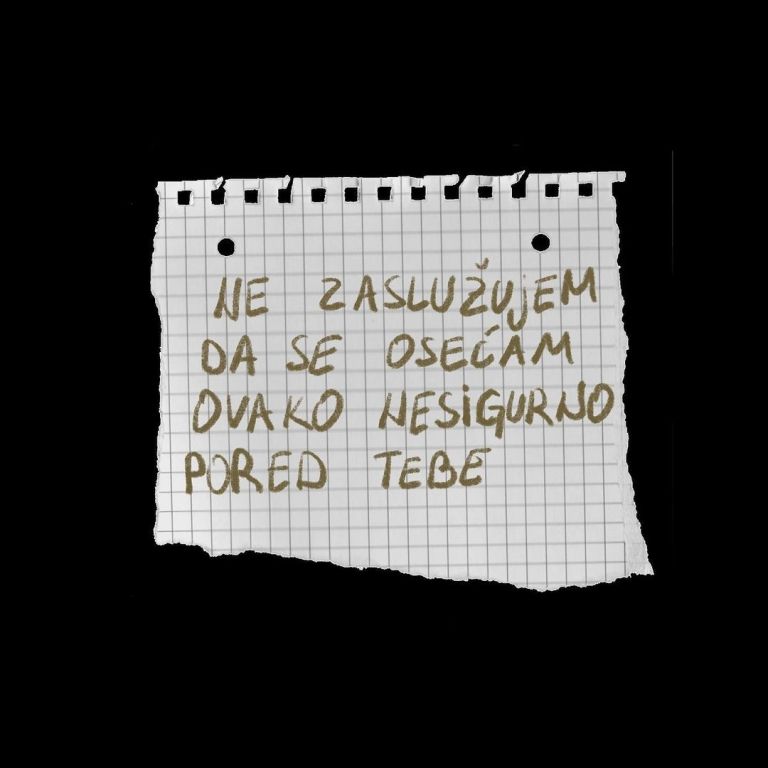 NE ZASLUŽUjEM
DA SE OSEĆAM
OVAKO NESiGURNO
PORED TEBE